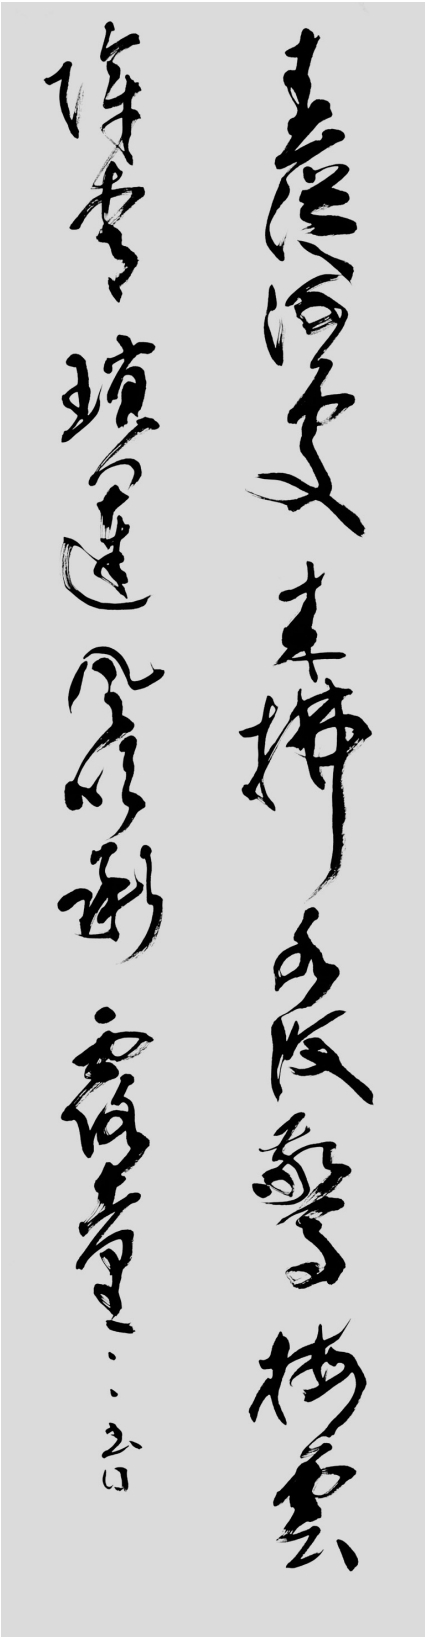 春從何處來拂水復驚梅雲
障青瑣闥風吹承露臺